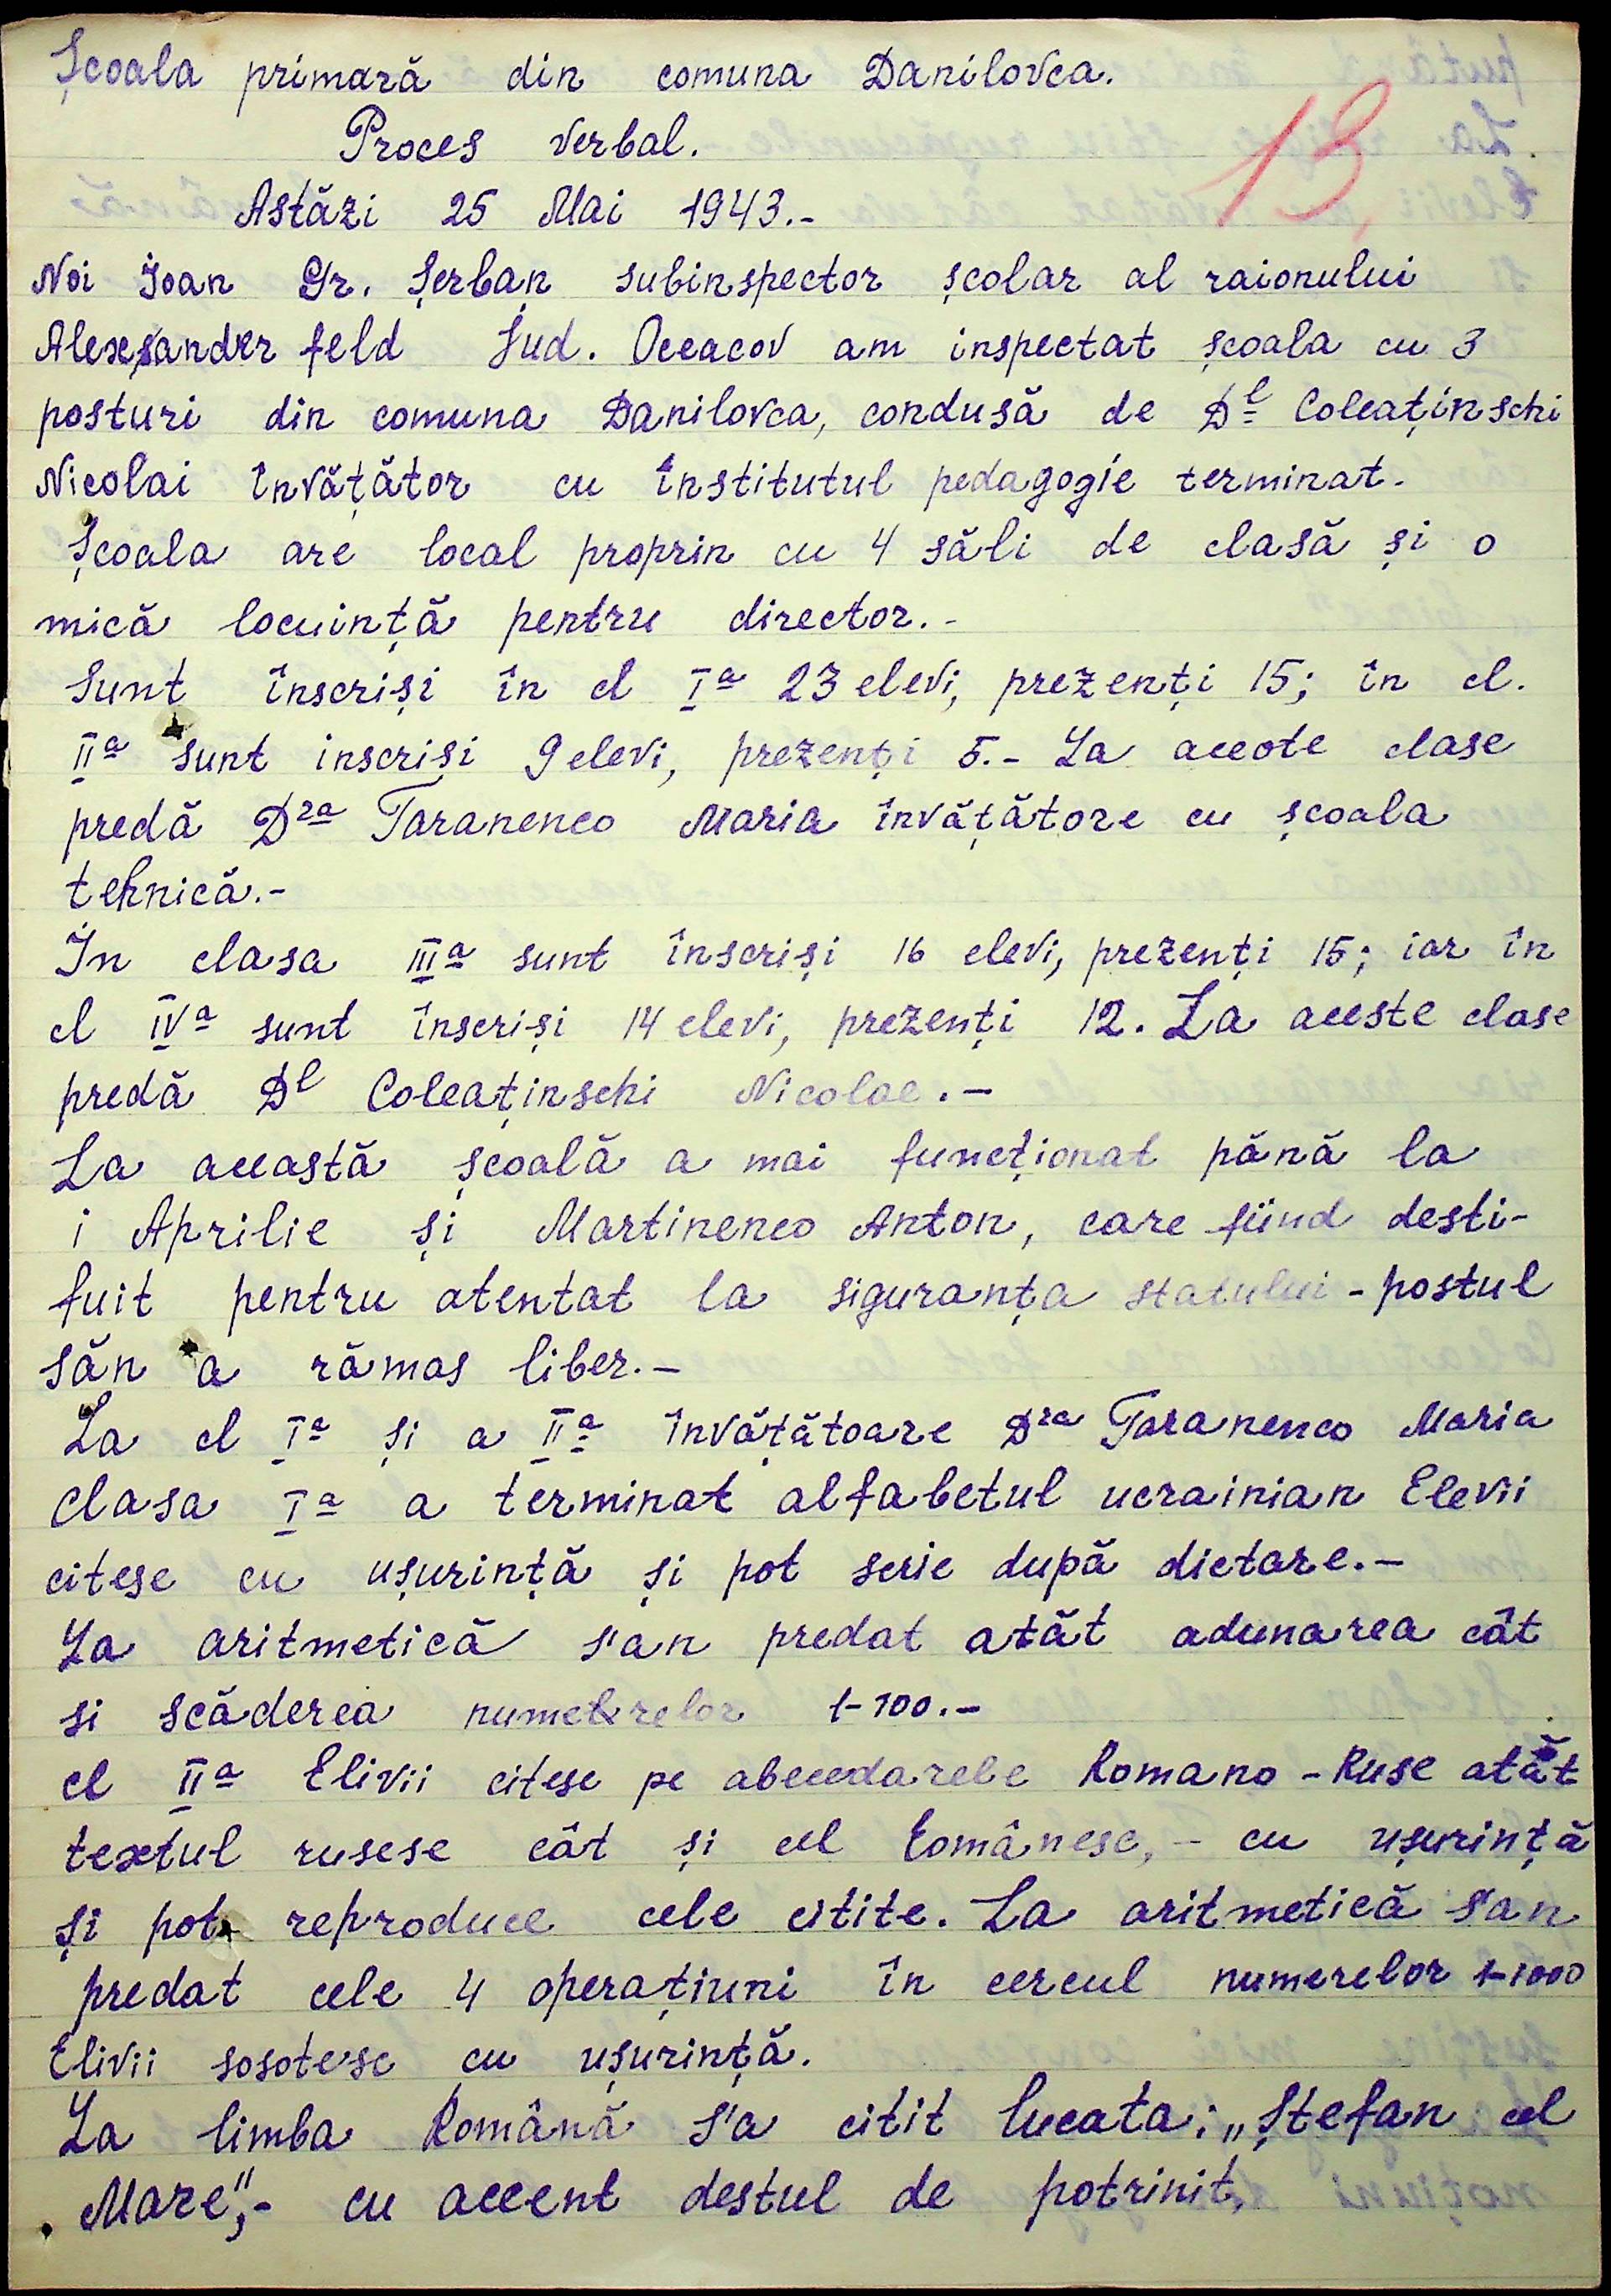 Școala primară din comuna Danilovca.
Proces verbal.
13
Astăzi 25 Mai 1943.-
Noi Ioan Gr. Șerban subinspector școlar al raionului
Alexsander feld Jud. Oceacov am inspectat școala cu 3
posturi din comuna Danilovca, condusă de Dl Coleaținschi
Nicolai învățător cu institutul pedagogic terminat.
Școala are local proprin cu 4 săli de clasă și o
mică locuință pentru director.-
Sunt înscriși în cl Ia 23 elevi, prezenți 15; în cl.
IIa sunt inscriși 9 elevi, prezenți 5.- La aceote clase
predă Dra Taranenco Maria învățătore cu școala
tehnică.-
In clasa IIIa sunt înscriși 16 elevi, prezenți 15; iar în
cl IVa sunt înscriși 14 elevi, prezenți 12. La aceste clase
predă Dl Coleaținschi Nicolae.-
La această școală a mai funcționat pănă la
i Aprilie și Martinenco Anton, care fiind desti-
tuit pentru atentat la siguranța statului - postul
săn a rămas liber.-
La cl Ia și a IIa învățătoare Dra Taranenco Maria
Clasa Ia a terminat alfabetul ucrainian Elevii
citesc cu ușurință și pot scrie după dictare.-
La aritmetică s'an predat atăt adunarea cât
si scăderea numerelor 1-100.-
cl IIa Elivii citesc pe abecedarele Romano - Ruse atăt
textul rusesc cât și cel Românesc, - cu ușurință
și pot reproduce cele citite. La aritmetică s'an
predat cele 4 operațiuni în cercul numerelor 1-1000
Elivii sosotesc cu ușurință.
La limba Română s'a citit lucata: „Ștefan cel
Mare",- cu accent destul de potrinit,